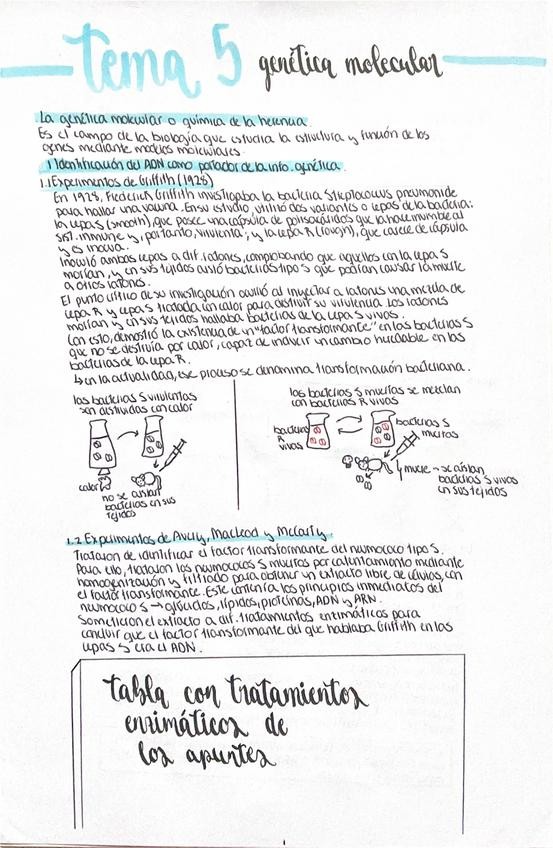 tema 5 genética molecular
La genética molecular o química de la herencia.
Es el campo de la biología que estudia la estructura y función de los
genes mediante modelos moleculares.
1 Identificación del ADN como portador de la info. genética.
1.1 Experimentos de Griffith (1928)
En 1928, Frederick Griffith investigaba la bacteria Streptococcus pneumonide
para hallar una vacuna. En su estudio, utilizó dos variantes o cepas de la bacteria:
la cepa S (smooth), que posee una cápsula de polisacáridos que la hace invisible al
sist. inmune y, por tanto, virulenta; y la cepa R (rough), que carece de cápsula
y es inocua.
Inoculó ambas cepas a dif. ratones, comprobando que aquellos con la cepa S
morían, y en sus tejidos aisló bacterias tipo S que podían causar la muerte
a otros ratones.
El punto crítico de su investigación ocurrió al inyectar a ratones una mezcla de
cepa R y cepa S tratada con calor para destruir su virulencia. Los ratones
morían y en sus tejidos hallaba bacterias de la cepa S vivas.
Con esto, demostró la existencia de un "factor transformante" en las bacterias S
que no se destruía por calor, capaz de inducir un cambio heredable en las
bacterias de la cepa R.
↳ en la actualidad, ese proceso se denomina transformación bacteriana.
las bacterias S virulentas
son destruidas con calor
calor
no se aíslan
bacterias en sus
tejidos
las bacterias S muertas se mezclan
con bacterias R vivas
bacterias
R
vivas
bacterias S
muertas
muere → se aíslan
bacterias S vivas
en sus tejidos
1.2 Experimentos de Avery, MacLeod y McCarty.
Trataron de identificar el factor transformante del neumococo tipo S.
Para ello, trataron los neumococos S muertos por calentamiento mediante
homogenización y filtrado para obtener un extracto libre de células, con
el factor transformante. Este contenía los principios inmediatos del
neumococo S → glúcidos, lípidos, proteínas, ADN y ARN.
Sometieron el extracto a dif. tratamientos enzimáticos para
concluir que el factor transformante del que hablaba Griffith en las
cepas S era el ADN.
tabla con tratamientos
enzimáticos de
los apuntes
1